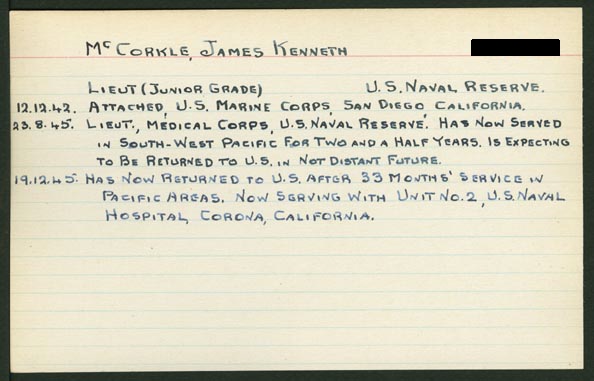 McCORKLE, JAMES KENNETH
LIEUT (JUNIOR GRADE) U.S. NAVAL RESERVE.
12.12.42. ATTACHED, U.S. MARINE CORPS, SAN DIEGO, CALIFORNIA.
23.8.45. LIEUT., MEDICAL CORPS, U.S. NAVAL RESERVE. HAS NOW SERVED
IN SOUTH-WEST PACIFIC FOR TWO AND A HALF YEARS. IS EXPECTING
TO BE RETURNED TO U.S. IN NOT DISTANT FUTURE.
19.12.45. HAS NOW RETURNED TO U.S. AFTER 33 MONTHS' SERVICE IN
PACIFIC AREAS. NOW SERVING WITH UNIT NO. 2, U.S. NAVAL
HOSPITAL, CORONA, CALIFORNIA.